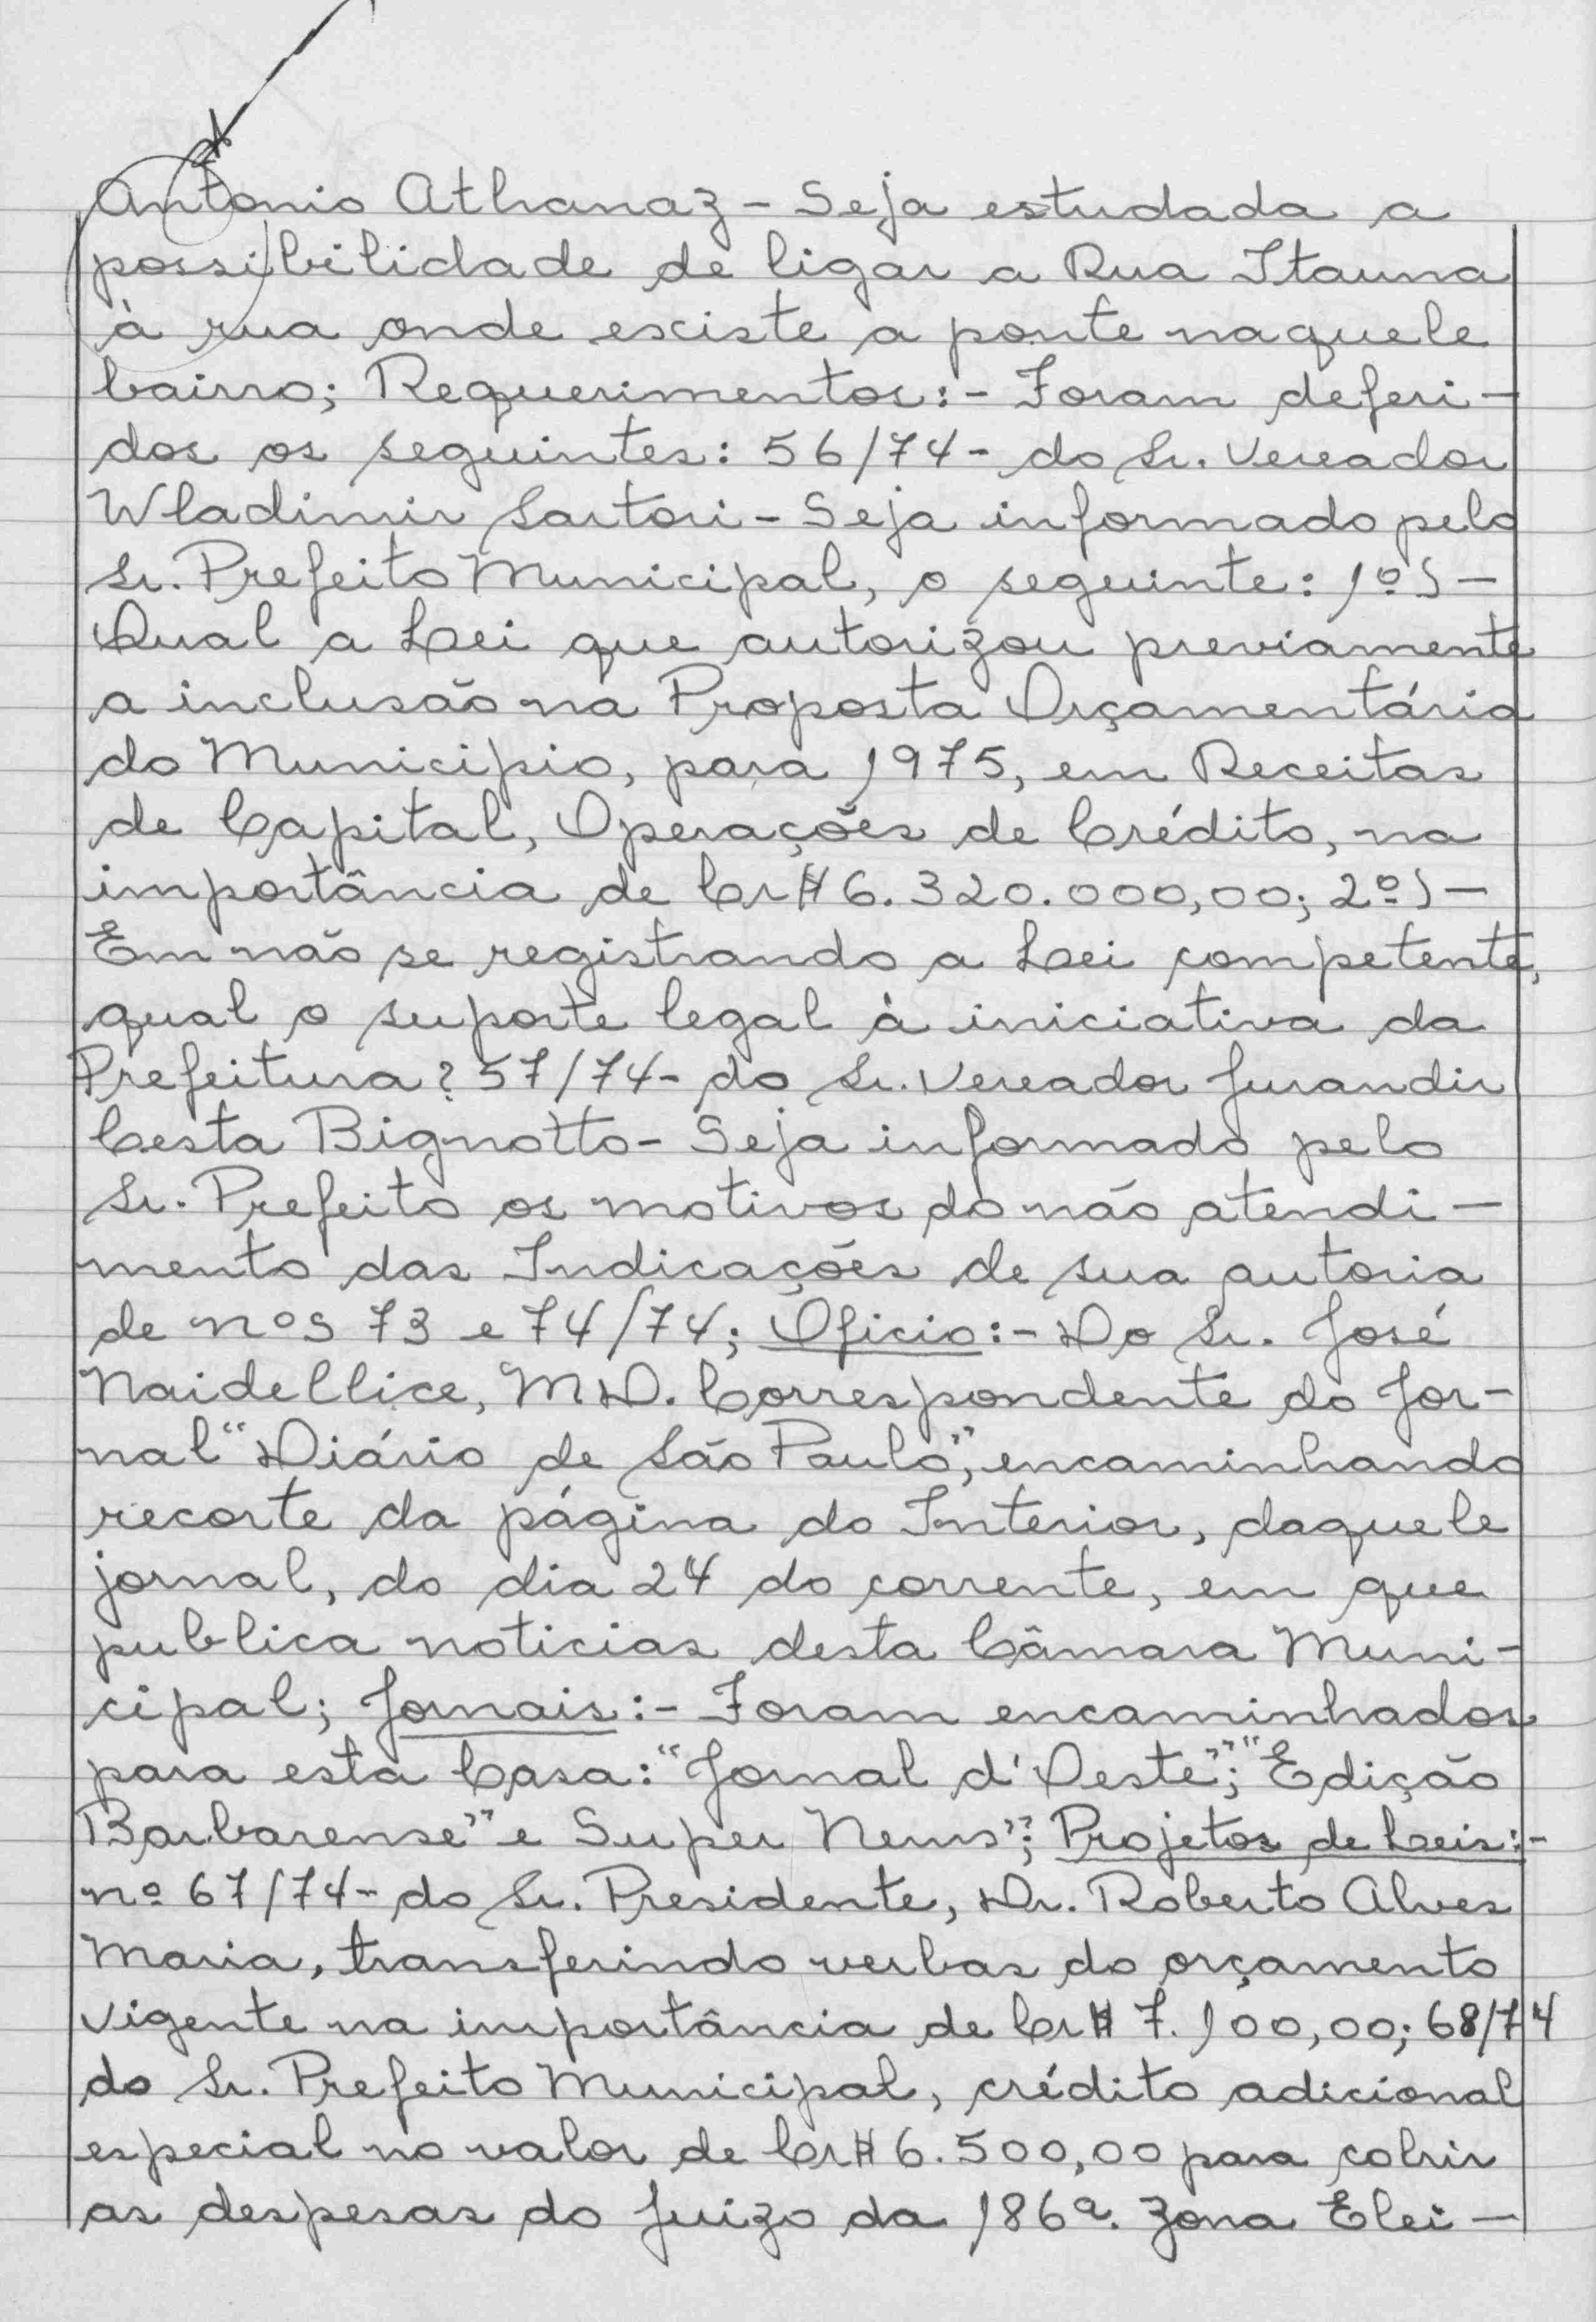 Antonio Athanaz - Seja estudada a
possibilidade de ligar a Rua Itauna
à rua onde existe a ponte naquele
bairro; Requerimentos:- Foram deferi-
dos os seguintes: 56/74 - do Sr. Vereador
Wladimir Sartori - Seja informado pelo
Sr. Prefeito Municipal, o seguinte: 1º) -
Qual a Lei que autorizou previamente
a inclusão na Proposta Orçamentária
do Municipio, para 1975, em Receitas
de Capital, Operações de Crédito, na
importância de Cr$ 6.320.000,00; 2º) -
Em não se registrando a Lei competente,
qual o suporte legal à iniciativa da
Prefeitura? 57/74 - do Sr. Vereador Jurandir
Cesta Bignotto - Seja informado pelo
Sr. Prefeito os motivos do não atendi-
mento das Indicações de sua autoria
de nºs 73 e 74/74; Oficio:- Do Sr. José
Naidellice, M.D. Correspondente do Jor-
nal "Diário de São Paulo", encaminhando
recorte da página do Interior, daquele
jornal, do dia 24 do corrente, em que
publica noticias desta Câmara Muni-
cipal; Jornais:- Foram encaminhados
para esta Casa: "Jornal d'Oeste"; "Edição
Barbarense" e Super News"; Projetos de Leis:-
nº 67/74 - do Sr. Presidente, Dr. Roberto Alves
Maria, transferindo verbas do orçamento
vigente na importância de Cr$ 7.100,00; 68/74
do Sr. Prefeito Municipal, crédito adicional
especial no valor de Cr$ 6.500,00 para cobrir
as despesas do Juizo da 186ª. Zona Elei-